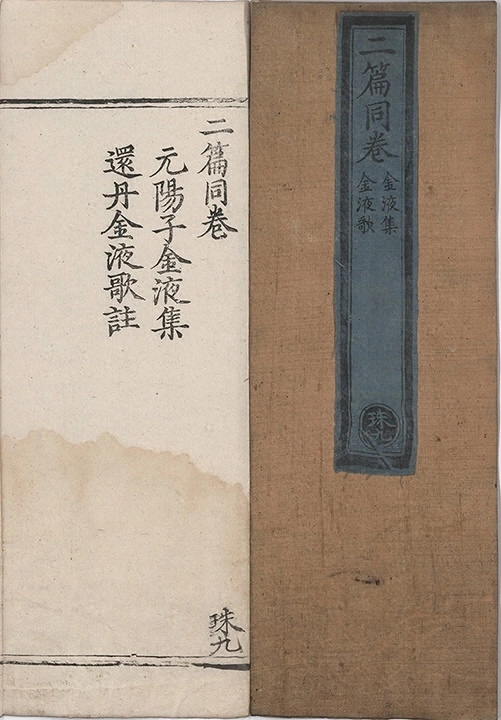 二篇同卷
金液集
金液歌
珠九
二篇同卷
元陽子金液集
還丹金液歌註
珠九